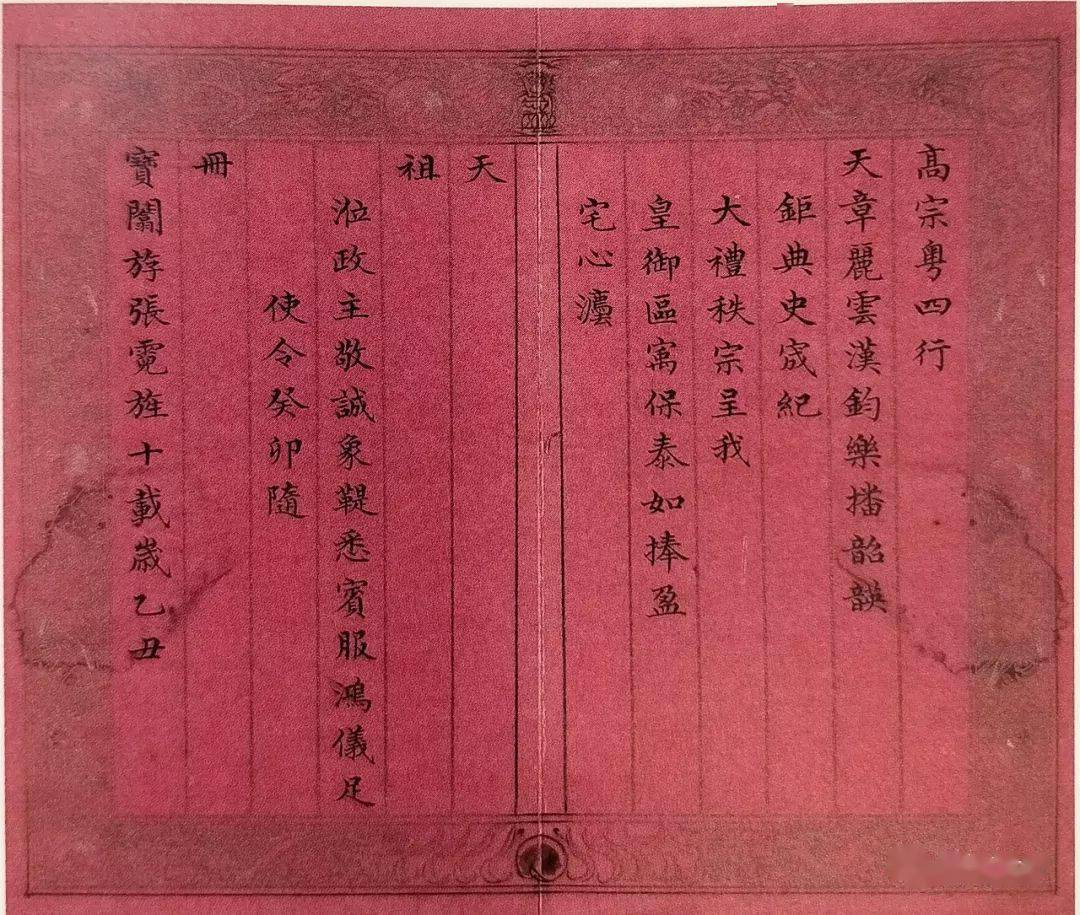 高宗粵四行
天章麗雲漢鈞樂播韶韺
鉅典史宬紀
大禮秩宗呈我
皇御區寓保泰如捧盈
宅心瀍
天
祖
涖政主敬誠象鞮悉賓服鴻儀足
使令癸卯隨
冊
寶闟斿張霓旌十載嵗乙丑